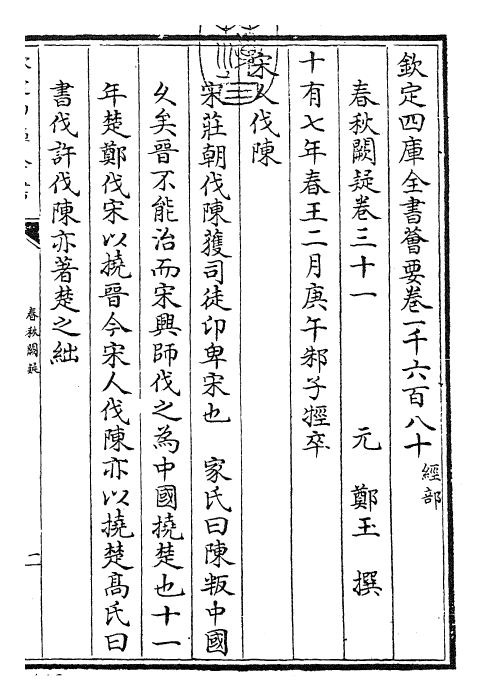 欽定四庫全書薈要卷一千六百八十經部
春秋闕疑卷三十一 元 鄭玉 撰
十有七年春王二月庚午邾子牼卒
宋人伐陳
宋莊朝伐陳獲司徒卬卑宋也 家氏曰陳叛中國
久矣晉不能治而宋興師伐之為中國撓楚也十一
年楚鄭伐宋以撓晉今宋人伐陳亦以撓楚高氏曰
書伐許伐陳亦著楚之絀
春秋闕疑